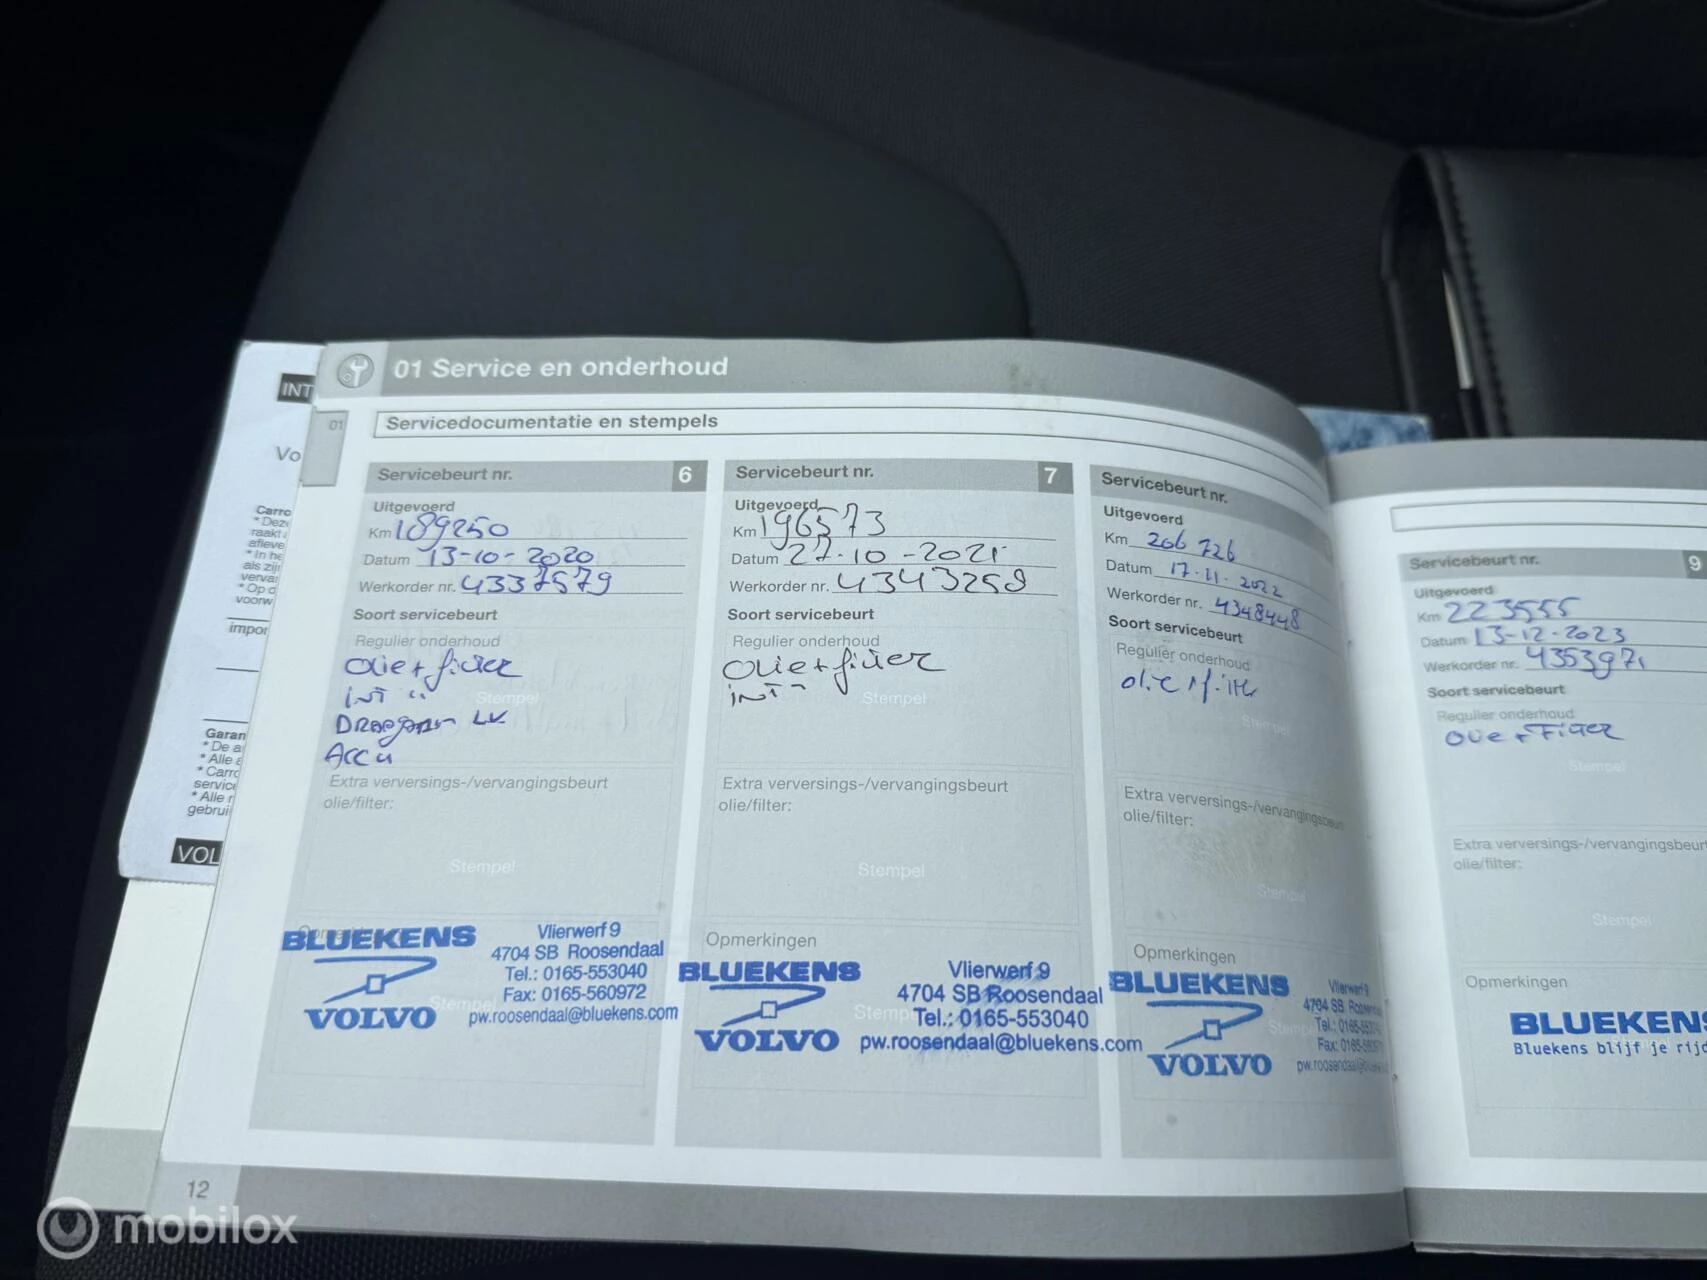 INT
Vo
Carro
* Deze
raakt
afleve
* In he
als zij
verva
* Op d
voorw
impor
Garan
* De a
* Alle
* Carro
service
* Alle r
gebrui
VOL
01 Service en onderhoud
01
Servicedocumentatie en stempels
Servicebeurt nr. 6
Uitgevoerd
Km 189250
Datum 13-10-2020
Werkorder nr. 4337579
Soort servicebeurt
Regulier onderhoud
Olie + filter
INT "
Stempel
Accu
Extra verversings-/vervangingsbeurt
olie/filter:
Stempel
BLUEKENS
VOLVO
Vlierwerf 9
4704 SB Roosendaal
Tel.: 0165-553040
Fax: 0165-560972
Stempel
pw.roosendaal@bluekens.com
Servicebeurt nr. 7
Uitgevoerd
Km 196573
Datum 27-10-2021
Werkorder nr. 4343258
Soort servicebeurt
Regulier onderhoud
Olie + filter
INT "
Stempel
Extra verversings-/vervangingsbeurt
olie/filter:
Stempel
Opmerkingen
BLUEKENS
VOLVO
Vlierwerf 9
4704 SB Roosendaal
Tel.: 0165-553040
pw.roosendaal@bluekens.com
Servicebeurt nr.
Uitgevoerd
Km 206726
Datum 17-11-2022
Werkorder nr. 4348448
Soort servicebeurt
Regulier onderhoud
olie + filter
Stempel
Extra verversings-/vervangingsbeurt
olie/filter:
Stempel
Opmerkingen
BLUEKENS
VOLVO
Vlierwerf 9
4704 SB Roosendaal
Tel.: 0165-553040
Fax: 0165-560972
Servicebeurt nr. 9
Uitgevoerd
Km 223555
Datum 13-12-2023
Werkorder nr. 4353971
Soort servicebeurt
Regulier onderhoud
Olie + Filter
Stempel
Extra verversings-/vervangingsbeurt
olie/filter:
Stempel
Opmerkingen
BLUEKENS
Bluekens blijf je rijd
12
mobilox